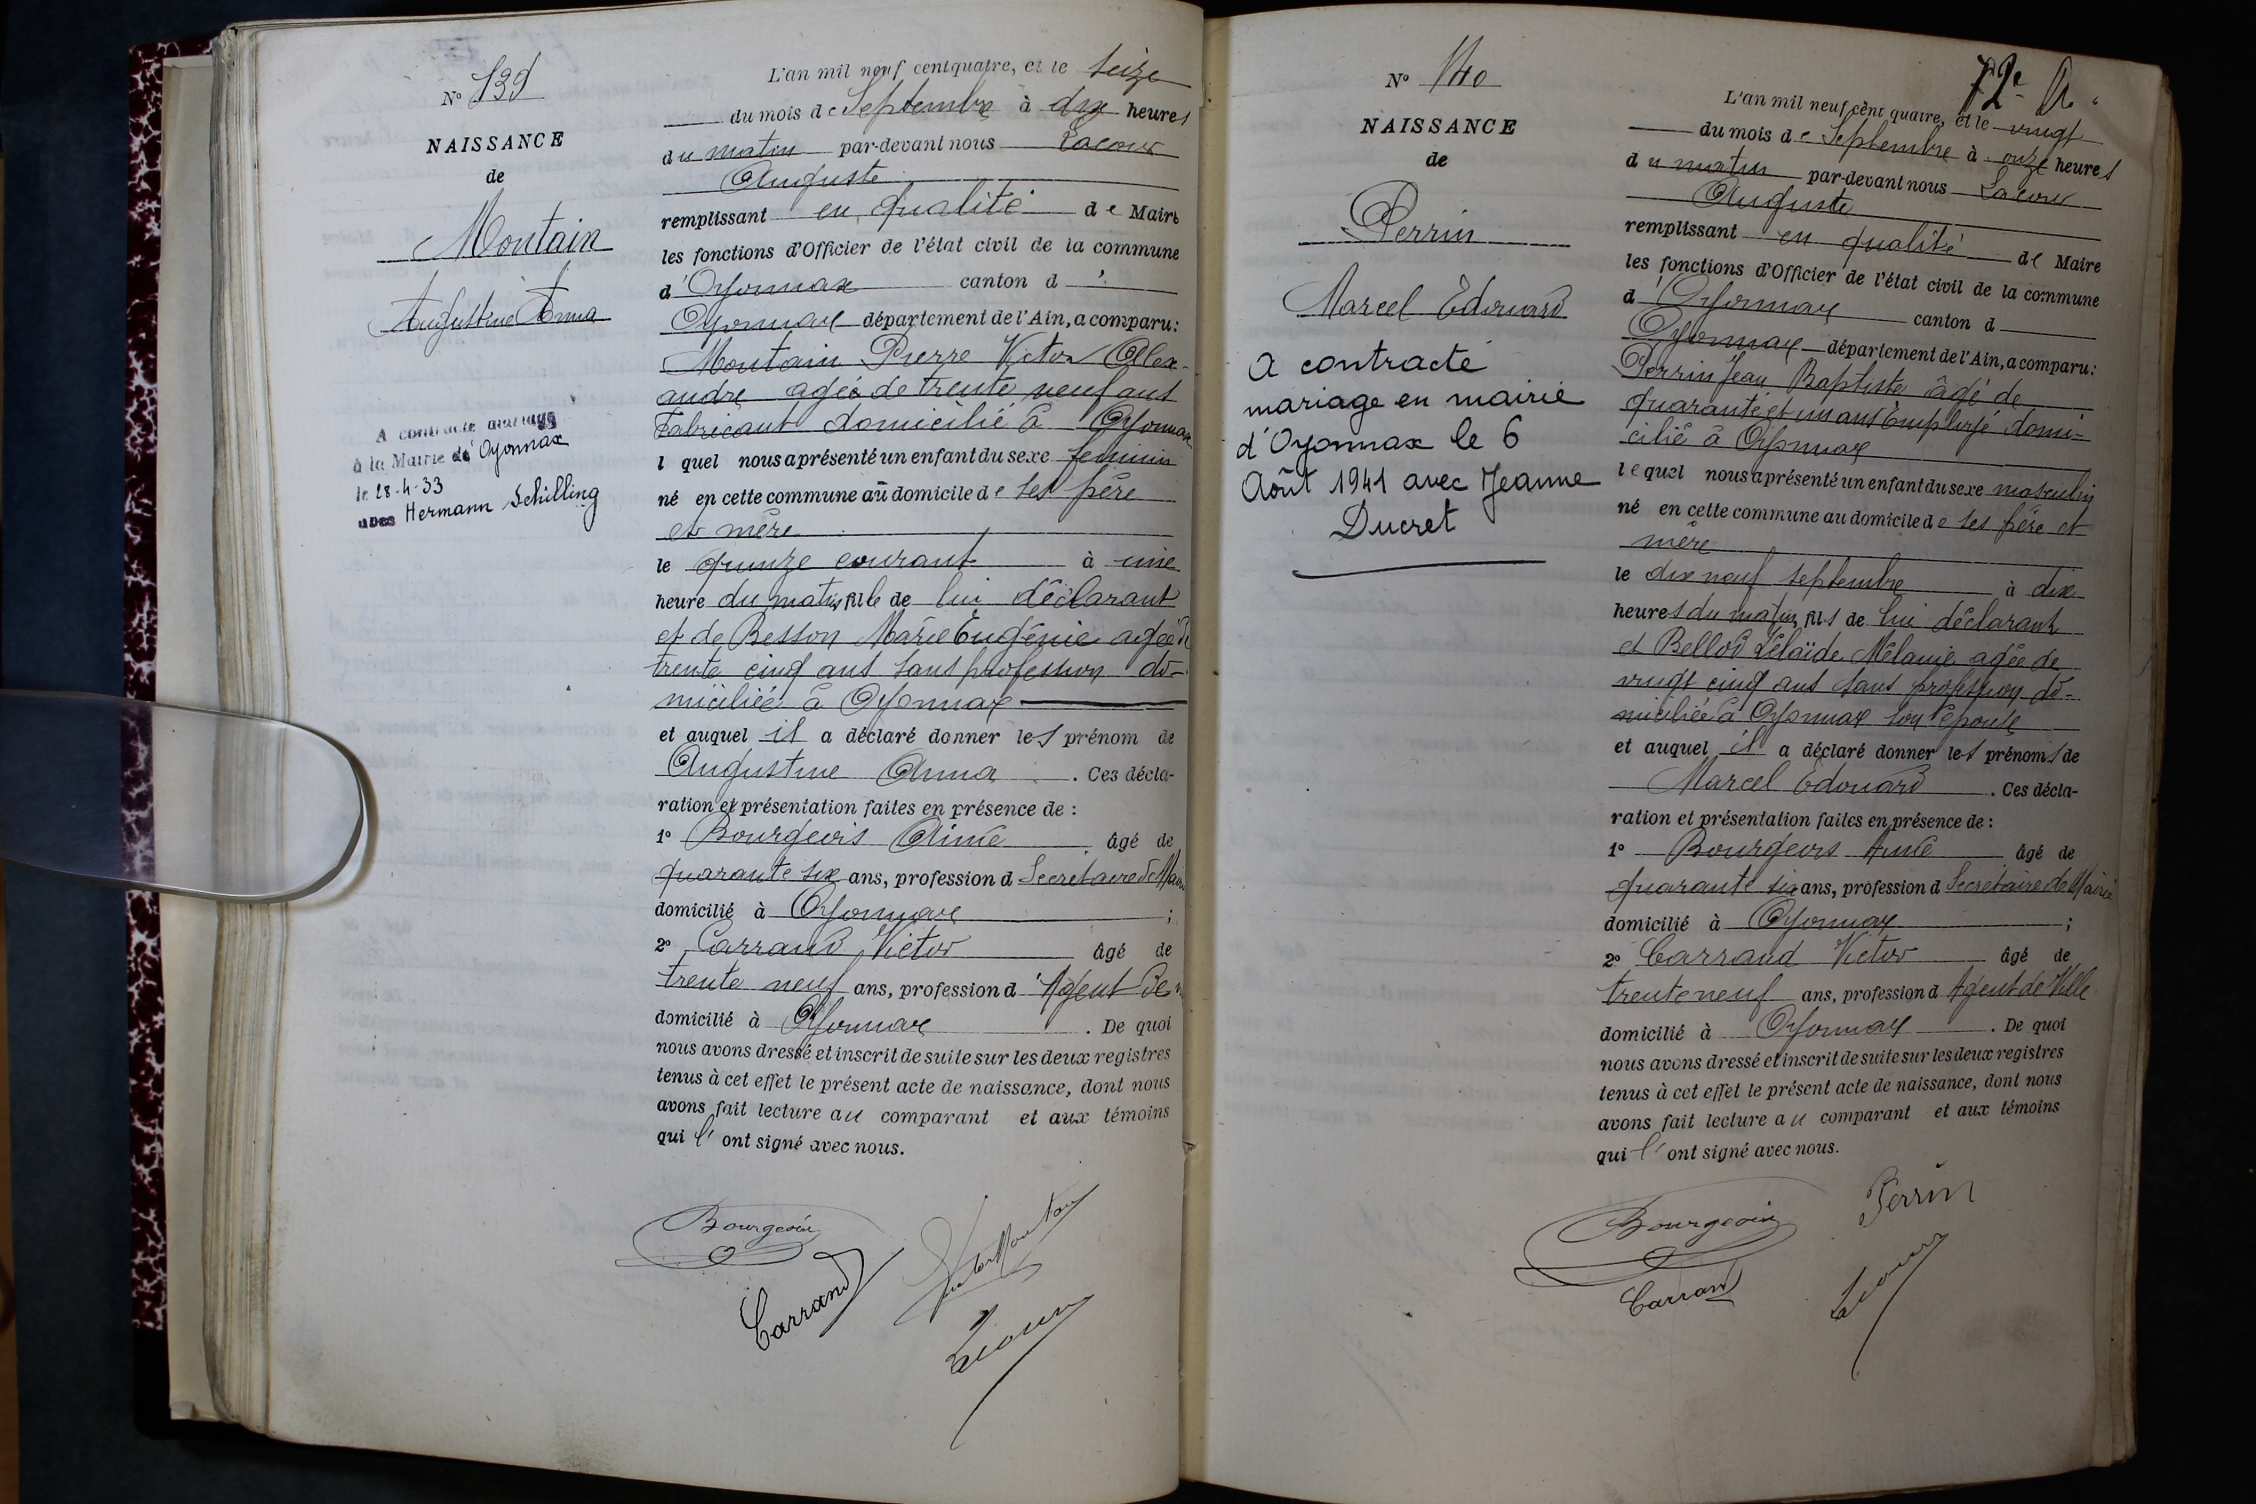 N° 139
NAISSANCE
de
Montain
Augustine Anna
A contracté mariage
à la Mairie de d'Oyonnax
le 28-4-33
avec Hermann Schilling
L'an mil neuf cent quatre, et le seize
du mois de Septembre à dix heures
du matin par-devant nous Lacour
Auguste
remplissant en qualité de Maire
les fonctions d'Officier de l'état civil de la commune
d'Oyonnax canton d'
Oyonnax département de l'Ain, a comparu:
Montain Pierre Victor Alex-
andre agée de trente neuf ans
Fabricant domicilié à Oyonnax
l quel nous a présenté un enfant du sexe féminin
né en cette commune au domicile de ses père
et mère
le quinze courant à une
heure du matin fille de lui déclarant
et de Besson Marie Eugénie agée de
trente cinq ans sans profession do-
miciliée à Oyonnax
et auquel il a déclaré donner les prénom de
Augustine Anna . Ces décla-
ration et présentation faites en présence de :
1° Bourgeois Aimé âgé de
quarante six ans, profession d Secrétaire de Mairie
domicilié à Oyonnax ;
2° Carrand Victor âgé de
trente neuf ans, profession d'Agent de
domicilié à Oyonnax . De quoi
nous avons dressé et inscrit de suite sur les deux registres
tenus à cet effet le présent acte de naissance, dont nous
avons fait lecture au comparant et aux témoins
qui l' ont signé avec nous.
Bourgeois
Carrand
Victor Montain
Lacour
72e
N° 140
NAISSANCE
de
Perrin
Marcel Edouard
A contracté
mariage en mairie
d'Oyonnax le 6
Août 1941 avec Jeanne
Ducret
L'an mil neuf cent quatre, et le vingt
du mois de Septembre à onze heures
du matin par-devant nous Lacour
Auguste
remplissant en qualité de Maire
les fonctions d'Officier de l'état civil de la commune
d'Oyonnax canton d
Oyonnax département de l'Ain, a comparu:
Perrin Jean Baptiste âgé de
quarante et un ans Employé domi-
cilié à Oyonnax
lequel nous a présenté un enfant du sexe masculin
né en cette commune au domicile de ses père et
mère
le dix neuf septembre à dix
heures du matin fils de lui déclarant
et Bellod Mélanie agée de
vingt cinq ans sans profession do-
miciliée à Oyonnax son épouse
et auquel il a déclaré donner les prénoms de
Marcel Edouard . Ces décla-
ration et présentation faites en présence de :
1° Bourgeois Aimé âgé de
quarante six ans, profession d Secrétaire de Mairie
domicilié à Oyonnax ;
2° Carrand Victor âgé de
trente neuf ans, profession d Agent de Ville
domicilié à Oyonnax . De quoi
nous avons dressé et inscrit de suite sur les deux registres
tenus à cet effet le présent acte de naissance, dont nous
avons fait lecture au comparant et aux témoins
qui l' ont signé avec nous.
Perrin
Bourgeois
Carrand
Lacour